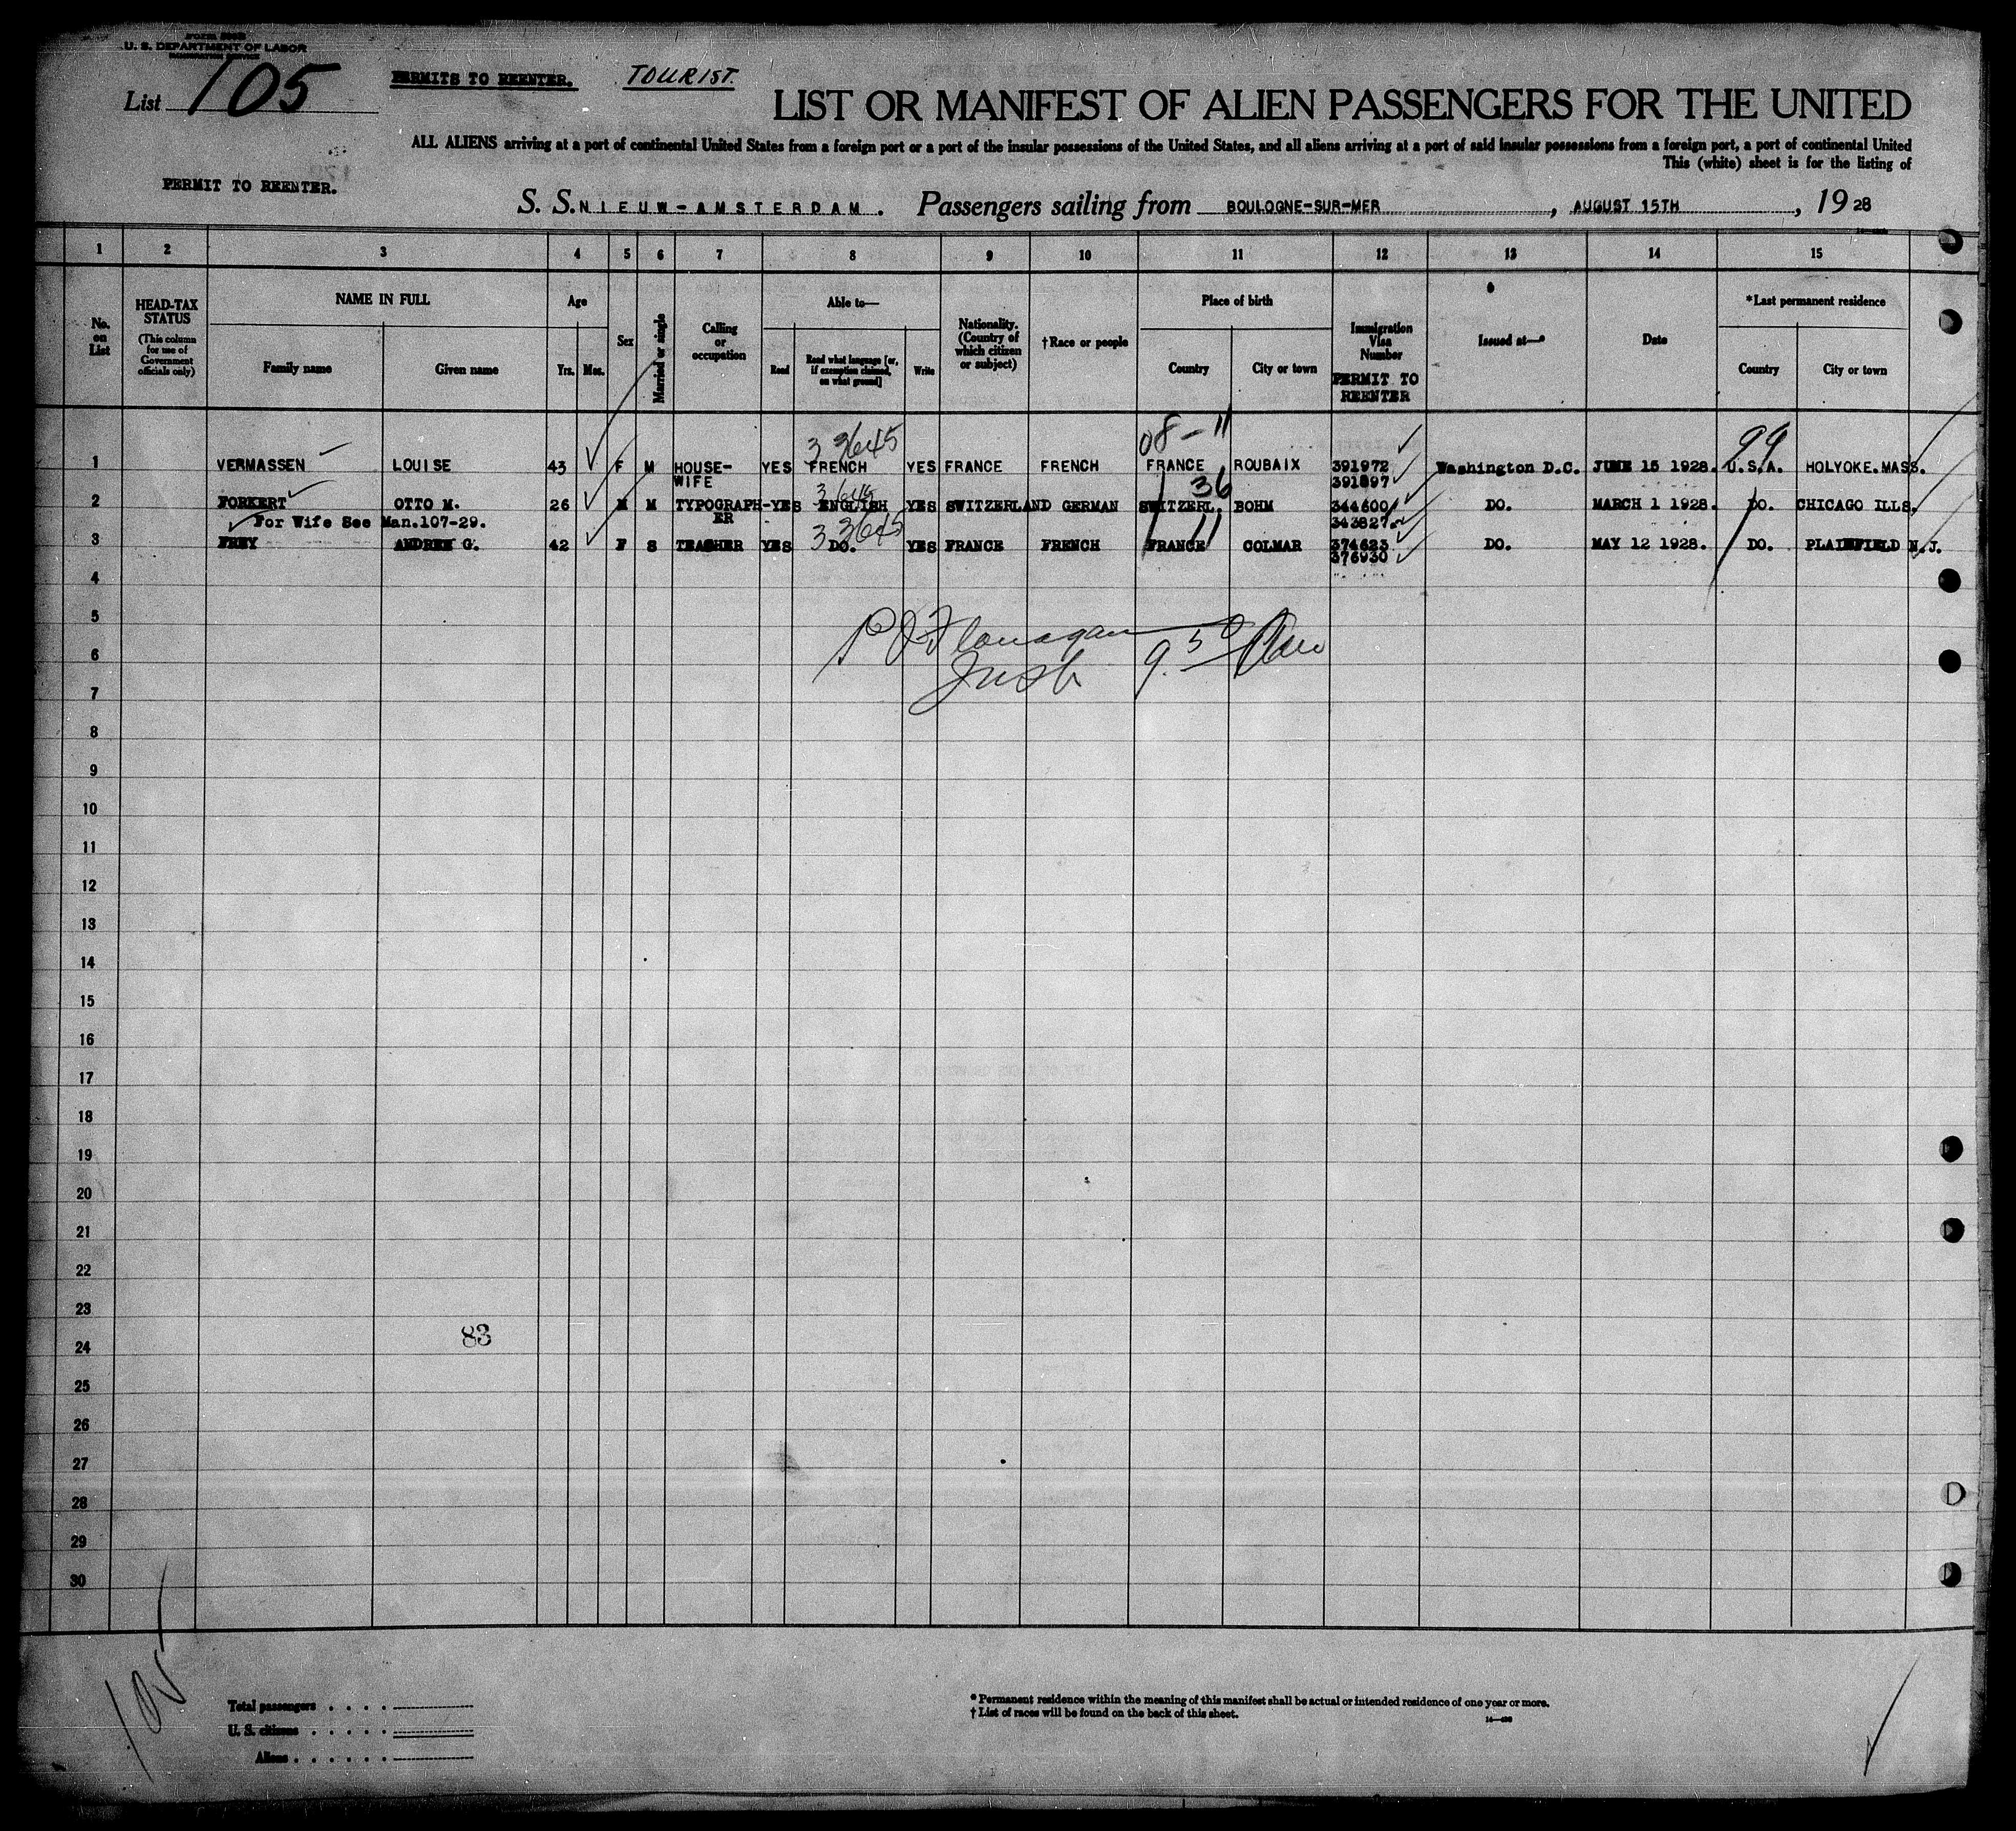 U. S. DEPARTMENT OF LABOR
List 105
PERMITS TO REENTER. TOURIST.
LIST OR MANIFEST OF ALIEN PASSENGERS FOR THE UNITED
ALL ALIENS arriving at a port of continental United States from a foreign port or a port of the insular possessions of the United States, and all aliens arriving at a port of said insular possessions from a foreign port, a port of continental United
This (white) sheet is for the listing of
PERMIT TO REENTER.
S. S. NIEUW-AMSTERDAM. Passengers sailing from BOULOGNE-SUR-MER, AUGUST 15TH, 1928
1 2 3 4 5 6 7 8 9 10 11 12 13 14 15
No. on List
HEAD-TAX STATUS (This column for use of Government officials only)
NAME IN FULL
Family name Given name
Age
Yrs. Mos.
Sex
Married or single
Calling or occupation
Able to—
Read Read what language [or, if exemption claimed, on what ground] Write
Nationality. (Country of which citizen or subject)
†Race or people
Place of birth
Country City or town
Immigration Visa Number
PERMIT TO REENTER
Issued at—
Date
*Last permanent residence
Country City or town
33645 08-11 99
1 VERMASSEN LOUISE 43 F M HOUSE- YES FRENCH YES FRANCE FRENCH FRANCE ROUBAIX 391972 Washington D.C. JUNE 15 1928. U.S.A. HOLYOKE.MASS.
WIFE 391897
3645 36
2 FORKERT OTTO M. 26 M M TYPOGRAPH-YES ENGLISH YES SWITZERLAND GERMAN SWITZERL. BOHM 344600 DO. MARCH 1 1928. DO. CHICAGO ILLS.
ER 343827
For Wife See Man.107-29.
33645 11
3 FREY ANDREE G. 42 F S TEACHER YES DO. YES FRANCE FRENCH FRANCE COLMAR 374623 DO. MAY 12 1928. DO. PLAINFIELD N.J.
376930
4
5
P J Flanagan
6
Insp 9.50
7
8
9
10
11
12
13
14
15
16
17
18
19
20
21
22
23
83
24
25
26
27
28
29
30
105
Total passengers . . . .
U. S. citizens . . . . .
Aliens . . . . . .
* Permanent residence within the meaning of this manifest shall be actual or intended residence of one year or more.
† List of races will be found on the back of this sheet.